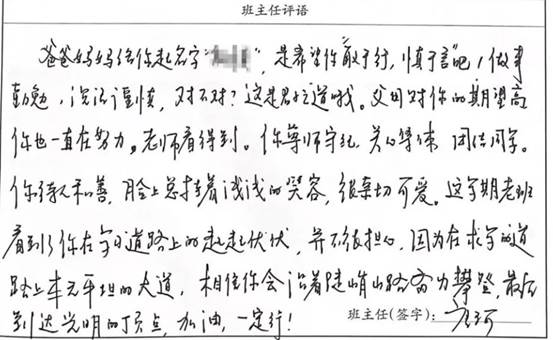 班主任评语
爸爸妈妈给你起名字“”，是希望你敢于行，慎于言吧，做事
勤勉，说话谨慎，对不对？这是君子之道哦。父母对你的期望高
你也一直在努力。老师看得到。你尊师守纪，关心集体，团结同学。
你待人和善，脸上总挂着浅浅的笑容，很亲切可爱。这学期老班
看到了你在学习道路上的起起伏伏，并不很担心，因为在求学的道
路上本无平坦的大道，相信你会沿着陡峭山路努力攀登，最后
到达光明的顶点，加油，一定行！
班主任(签字)：